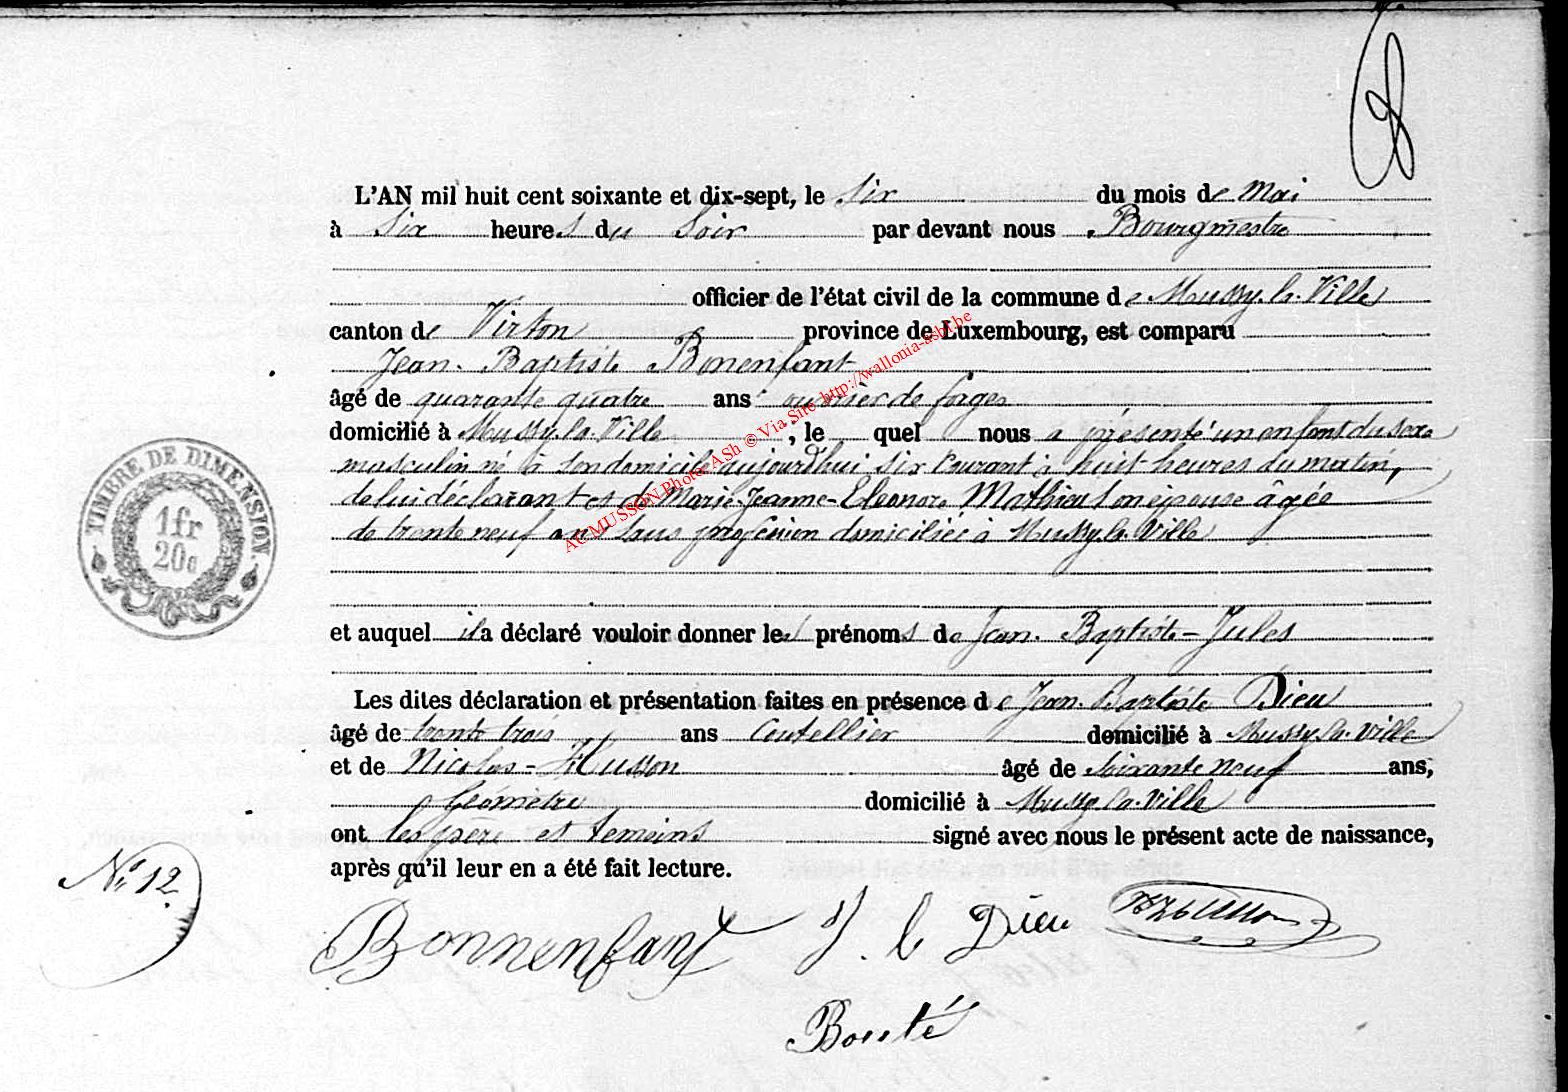 L'AN mil huit cent soixante et dix-sept, le six du mois de Mai
à Six heures du Soir par devant nous Bourgmestre
officier de l'état civil de la commune de Mussy-la-Ville
canton de Virton province de Luxembourg, est comparu
Jean-Baptiste Bonenfant
âgé de quarante quatre ans ouvrier de forges
domicilié à Mussy-la-Ville, le quel nous a présenté un enfant du sexe
masculin né à son domicile aujourd'hui six courant à huit heures du matin,
de lui déclarant et de Marie-Jeanne-Eleonore Mathieu son épouse âgée
de trente neuf ans sans profession domiciliée à Mussy-la-Ville
et auquel il a déclaré vouloir donner les prénoms de Jean-Baptiste-Jules
Les dites déclaration et présentation faites en présence de Jean-Baptiste Dieu
âgé de trente trois ans Coutellier domicilié à Mussy-la-Ville
et de Nicolas-Husson âgé de Soixante neuf ans,
Géomètre domicilié à Mussy-la-Ville
ont les père et temoins signé avec nous le présent acte de naissance,
après qu'il leur en a été fait lecture.
TIMBRE DE DIMENSION.
1fr
20c
N° 12.
Bonnenfant J. b Dieu NHusson
Bouté
ACMUSSON Photo: ASh © Via Site http://wallonia-asbl.be